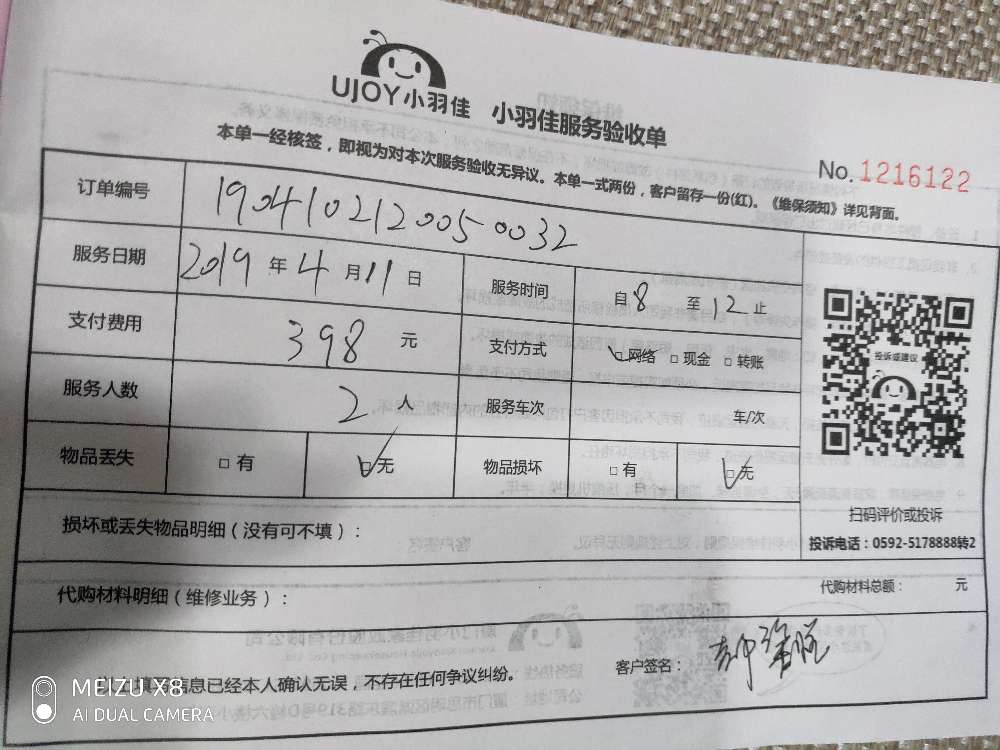 UJOY小羽佳 小羽佳服务验收单
本单一经核签，即视为对本次服务验收无异议。本单一式两份，客户留存一份(红)。《维保须知》详见背面。
No.1216122
订单编号 190410212005-0032
服务日期 2019年4月11日 服务时间 自8至12止
支付费用 398元 支付方式 网络 现金 转账
服务人数 2人 服务车次 车/次
物品丢失 有 无 物品损坏 有 无
投诉或建议
扫码评价或投诉
投诉电话：0592-5178888转2
损坏或丢失物品明细（没有可不填）：
代购材料明细（维修业务）： 代购材料总额： 元
填 信息已经本人确认无误，不存在任何争议纠纷。 客户签名：
MEIZU X8
AI DUAL CAMERA